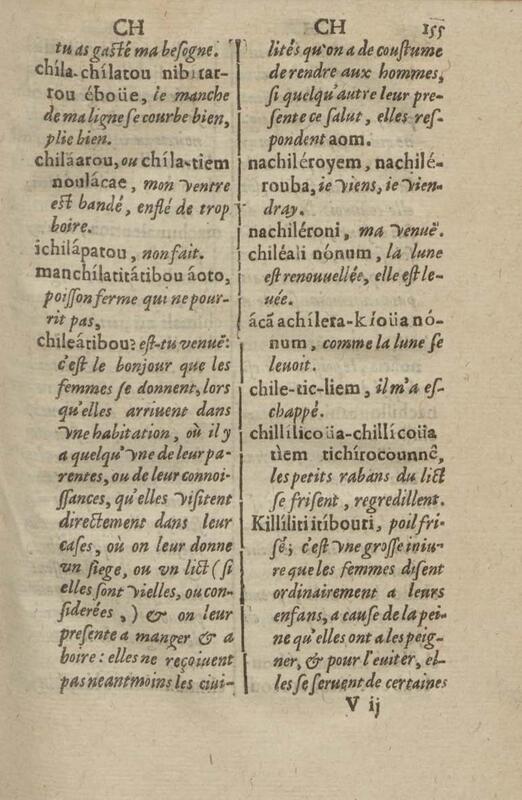 CH
CH
155
tu as gasté ma besogne.
chíla-chílatou nibitar-
rou éboüe, le manche
de ma ligne se courbe bien,
plie bien.
chiláarou, ou chíla-tiem
noulácae, mon ventre
est bandé, enflé de trop
boire.
ichilápatou, non fait.
manchílatitátibou áoto,
poisson ferme qui ne pour-
rit pas,
chileátibou? est-tu venuë:
c'est le bonjour que les
femmes se donnent, lors
qu'elles arriuent dans
vne habitation, où il y
a quelqu'vne de leur pa-
rentes, ou de leur connoi-
ssances, qu'elles visitent
directement dans leur
cases, où on leur donne
vn siege, ou vn lict (si
elles sont vielles, ou con-
siderées,) & on leur
presente a manger & a
boire: elles ne reçoiuent
pas neantmoins les ciui-
lités qu'on a de coustume
de rendre aux hommes,
si quelqu'autre leur pre-
sente ce salut, elles res-
pondent aom.
nachiléroyem, nachilé-
rouba, ie viens, ie vien-
dray.
nachiléroni, ma venuë.
chiléali nónum, la lune
est renouuellée, elle est le-
uée.
ácā achíleta-kíoüa nó-
num, comme la lune se
leuoit.
chile-tic-liem, il m'a es-
chappé.
chillílicoüa-chillícoüa
tìem tichírocounnê,
les petits rabans du lict
se frisent, regredillent.
Killíliti itíbouri, poil fri-
sé; c'est vne grosse iniu-
re que les femmes disent
ordinairement a leurs
enfans, a cause de la pei-
ne qu'elles ont a les peig-
ner, & pour l'euiter, el-
les se seruent de certaines
V ij